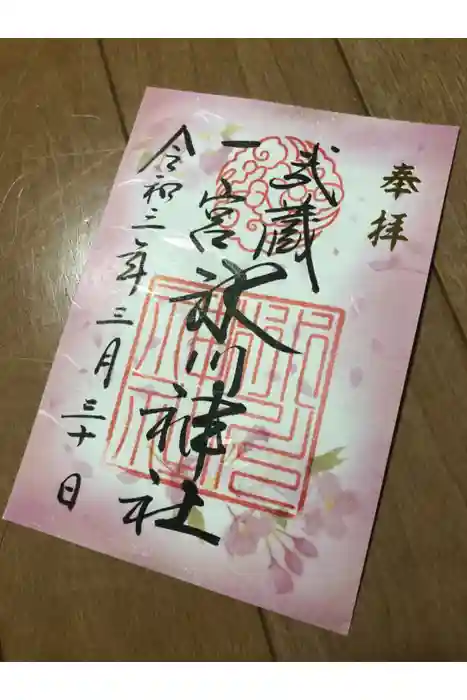 奉拝
武蔵
一宮
氷川神社
令和三年三月三十日